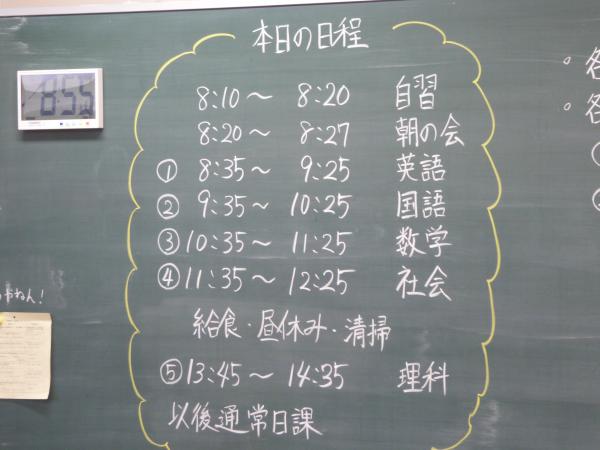 本日の日程
8:55
8:10〜 8:20 自習
8:20〜 8:27 朝の会
① 8:35〜 9:25 英語
② 9:35〜 10:25 国語
③ 10:35〜 11:25 数学
④ 11:35〜 12:25 社会
給食・昼休み・清掃
⑤ 13:45〜 14:35 理科
以後通常日課
ねん!